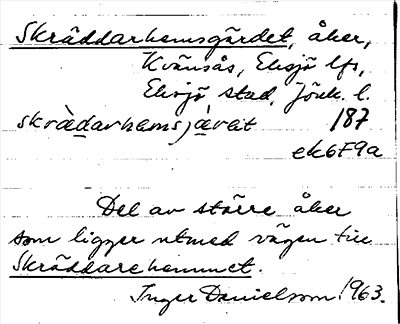 Skräddarhemsgärdet, åker,
Kvänsås, Eksjö lfs,
Eksjö stad, Jönk. l.
skrädarhemsjärat 187
ek6F9a
Del av större åker
som ligger utmed vägen till
Skräddarehemmet.
Inger Danielsson 1963.